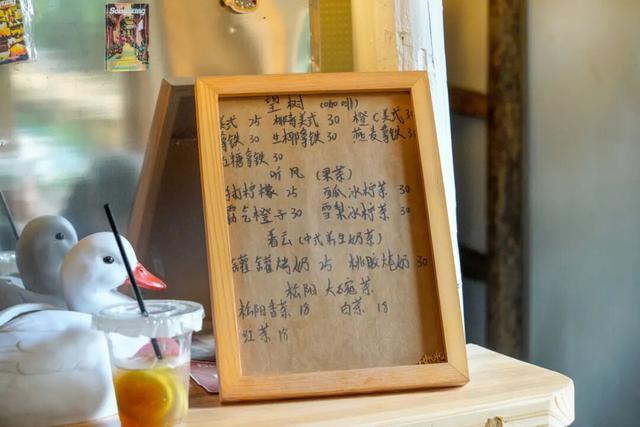 Songyang
望树 (咖啡)
美式 25 椰青美式 30 橙C美式 30
拿铁 30 生椰拿铁 30 燕麦拿铁 30
红糖拿铁 30
听风 (果茶)
柠檬 25 西瓜冰柠茶 30
橙子 30 雪梨冰柠茶 30
看云 (中式养生奶茶)
罐罐烤奶 25 桃胶炖奶 30
松阳 大碗茶
松阳香茶 18 白茶 18
红茶 18